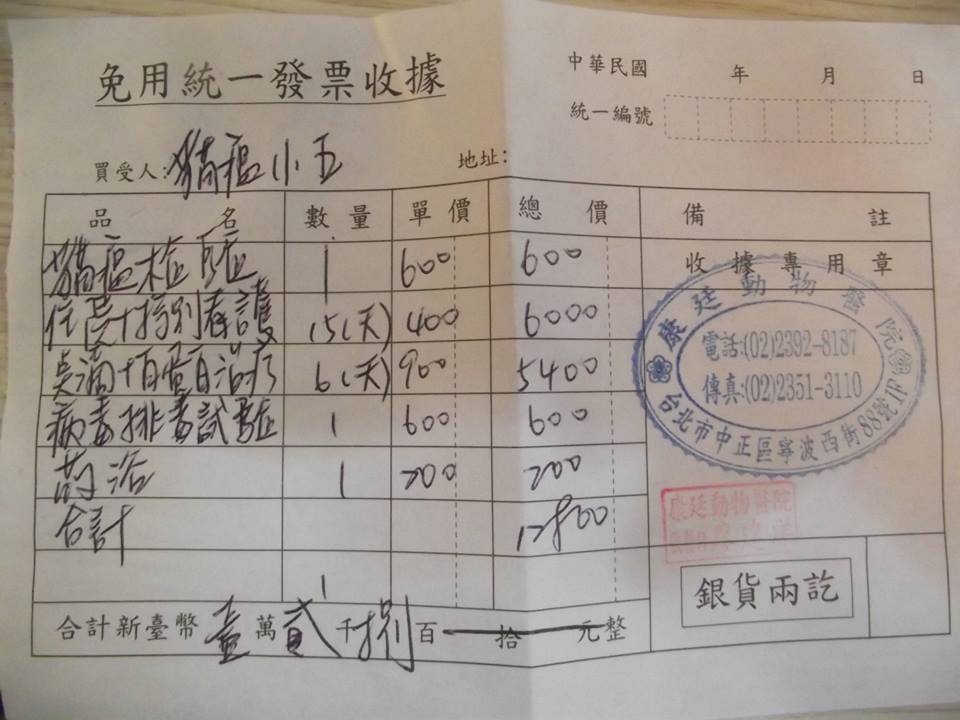 免用統一發票收據
中華民國 年 月 日
統一編號
買受人:貓瘟小五 地址:
品名 數量 單價 總價 備註
貓瘟檢驗 1 600 600 收據專用章
住院+特別看護 15(天) 400 6000
點滴+蛋白治療 6(天) 900 5400
病毒排毒試驗 1 600 600
藥浴 1 200 200
合計 12800
康廷動物醫院
電話:(02)2392-8187
傳真:(02)2351-3110
台北市中正區寧波西街88號1F
康廷動物醫院
銀貨兩訖
合計新臺幣壹萬貳千捌百拾元整